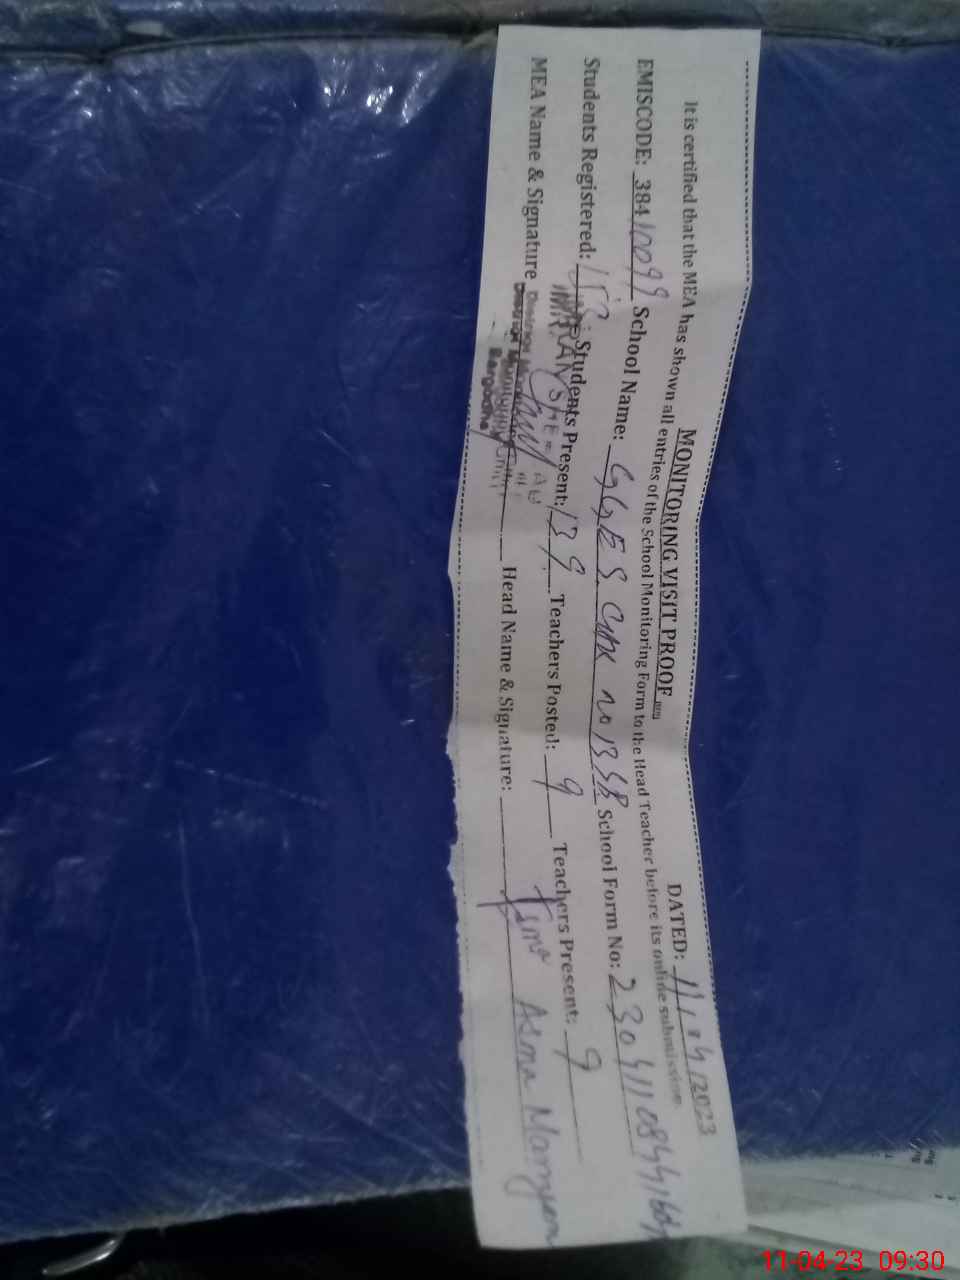 MONITORING VISIT PROOF DATED: 11/04/2023
It is certified that the MEA has shown all entries of the School Monitoring Form to the Head Teacher before its online submission.
EMISCODE: 38410099 School Name: GGES Chk no 13 SB School Form No: 230411
Students Registered: Students Present: 139 Teachers Posted: 9 Teachers Present: 9
MEA Name & Signature Head Name & Signature: Asma Maryam
IMRAN
District Monitoring
Sargodha
11-04-23 09:30